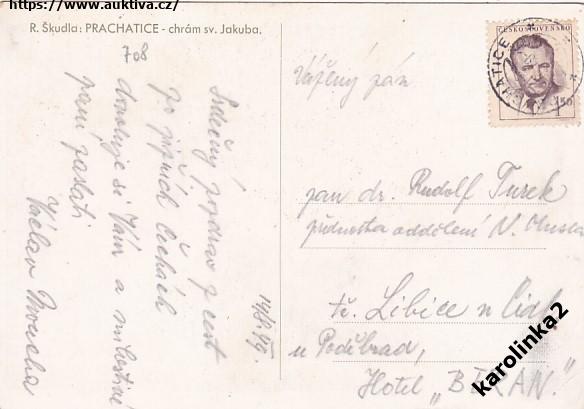 https://www.auktiva.cz/
R. Škudla: PRACHATICE - chrám sv. Jakuba.
708
Srdečný pozdrav z cest
po jižních Čechách
dovoluje si Vám a milostivé
paní zaslati
Václav
ČESKOSLOVENSKO
1.50
Vážený pán
pan dr. Rudolf Turek
přednosta oddělení N. Musea
tč. Libice n Cidl
u Poděbrad,
Hotel „BERAN."
karolinka2